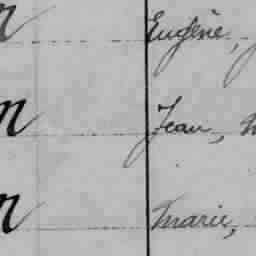 n Eugène,
n Jean,
n Marie,